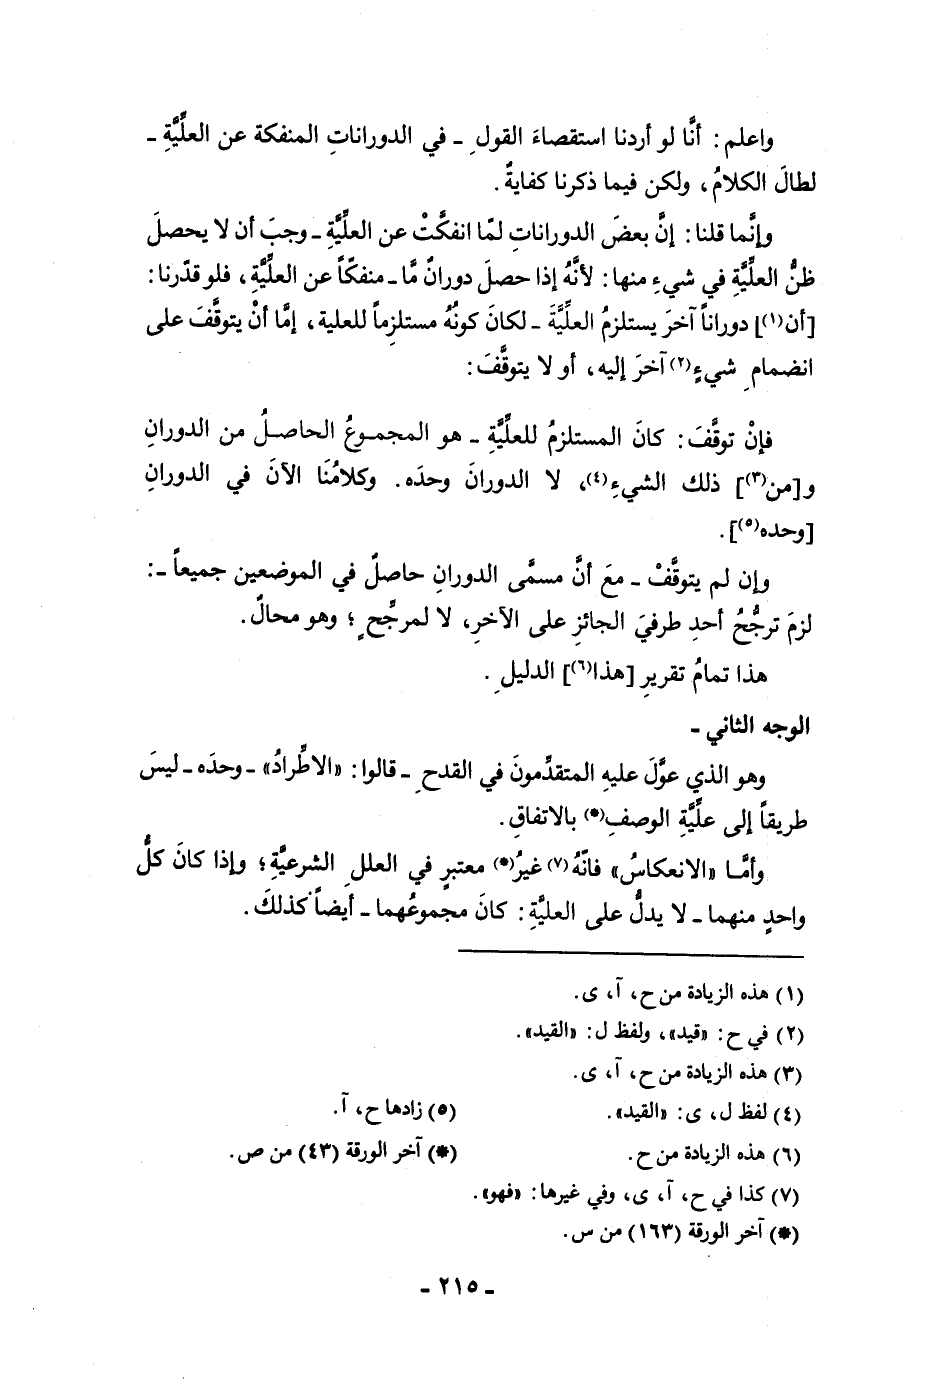 واعلم: أنَّا لو أردنا استقصاءَ القولِ ـ في الدوراناتِ المنفكة عن العلِّيَّةِ ـ
لطالَ الكلامُ، ولكن فيما ذكرنا كفايةٌ.
وإنَّما قلنا: إنَّ بعضَ الدوراناتِ لمّا انفكَّتْ عن العلِّيَّةِ ـ وجبَ أن لا يحصلَ
ظنُّ العلِّيَّةِ في شيءٍ منها: لأنَّهُ إذا حصلَ دورانٌ مَّا ـ منفكّاً عن العلِّيَّةِ، فلو قدّرنا:
[أن(١)] دوراناً آخرَ يستلزمُ العلِّيَّةَ ـ لكانَ كونُهُ مستلزماً للعلية، إمَّا أنْ يتوقَّفَ على
انضمامِ شيءٍ(٢) آخرَ إليه، أو لا يتوقَّفَ:
فإنْ توقَّفَ: كانَ المستلزمُ للعلِّيَّةِ ـ هو المجموعُ الحاصلُ من الدورانِ
و[من(٣)] ذلك الشيءِ(٤)، لا الدورانَ وحدَه. وكلامُنَا الآنَ في الدورانِ
[وحده(٥)].
وإن لم يتوقَّفْ ـ معَ أنَّ مسمَّى الدورانِ حاصلٌ في الموضعين جميعاً ـ:
لزمَ ترجُّحُ أحدِ طرفيَ الجائزِ على الآخرِ، لا لمرجِّحٍ؛ وهو محالٌ.
هذا تمامُ تقريرِ [هذا(٦)] الدليلِ.
الوجه الثاني ـ
وهو الذي عوَّلَ عليهِ المتقدِّمونَ في القدحِ ـ قالوا: «الاطِّرادُ» ـ وحدَه ـ ليسَ
طريقاً إلى علِّيَّةِ الوصفِ(*) بالاتفاقِ.
وأمَّا «الانعكاسُ» فانّهُ(٧) غيرُ(*) معتبرٍ في العللِ الشرعيَّةِ؛ وإذا كانَ كلُّ
واحدٍ منهما ـ لا يدلُّ على العليَّةِ: كانَ مجموعُهما ـ أيضاً كذلكَ.
(١) هذه الزيادة من ح، آ، ى.
(٢) في ح: «قيد»، ولفظ ل: «القيد».
(٣) هذه الزيادة من ح، آ، ى.
(٤) لفظ ل، ى: «القيد». (٥) زادها ح، آ.
(٦) هذه الزيادة من ح. (*) آخر الورقة (٤٣) من ص.
(٧) كذا في ح، آ، ى، وفي غيرها: «فهو».
(*) آخر الورقة (١٦٣) من س.
ـ ٢١٥ ـ